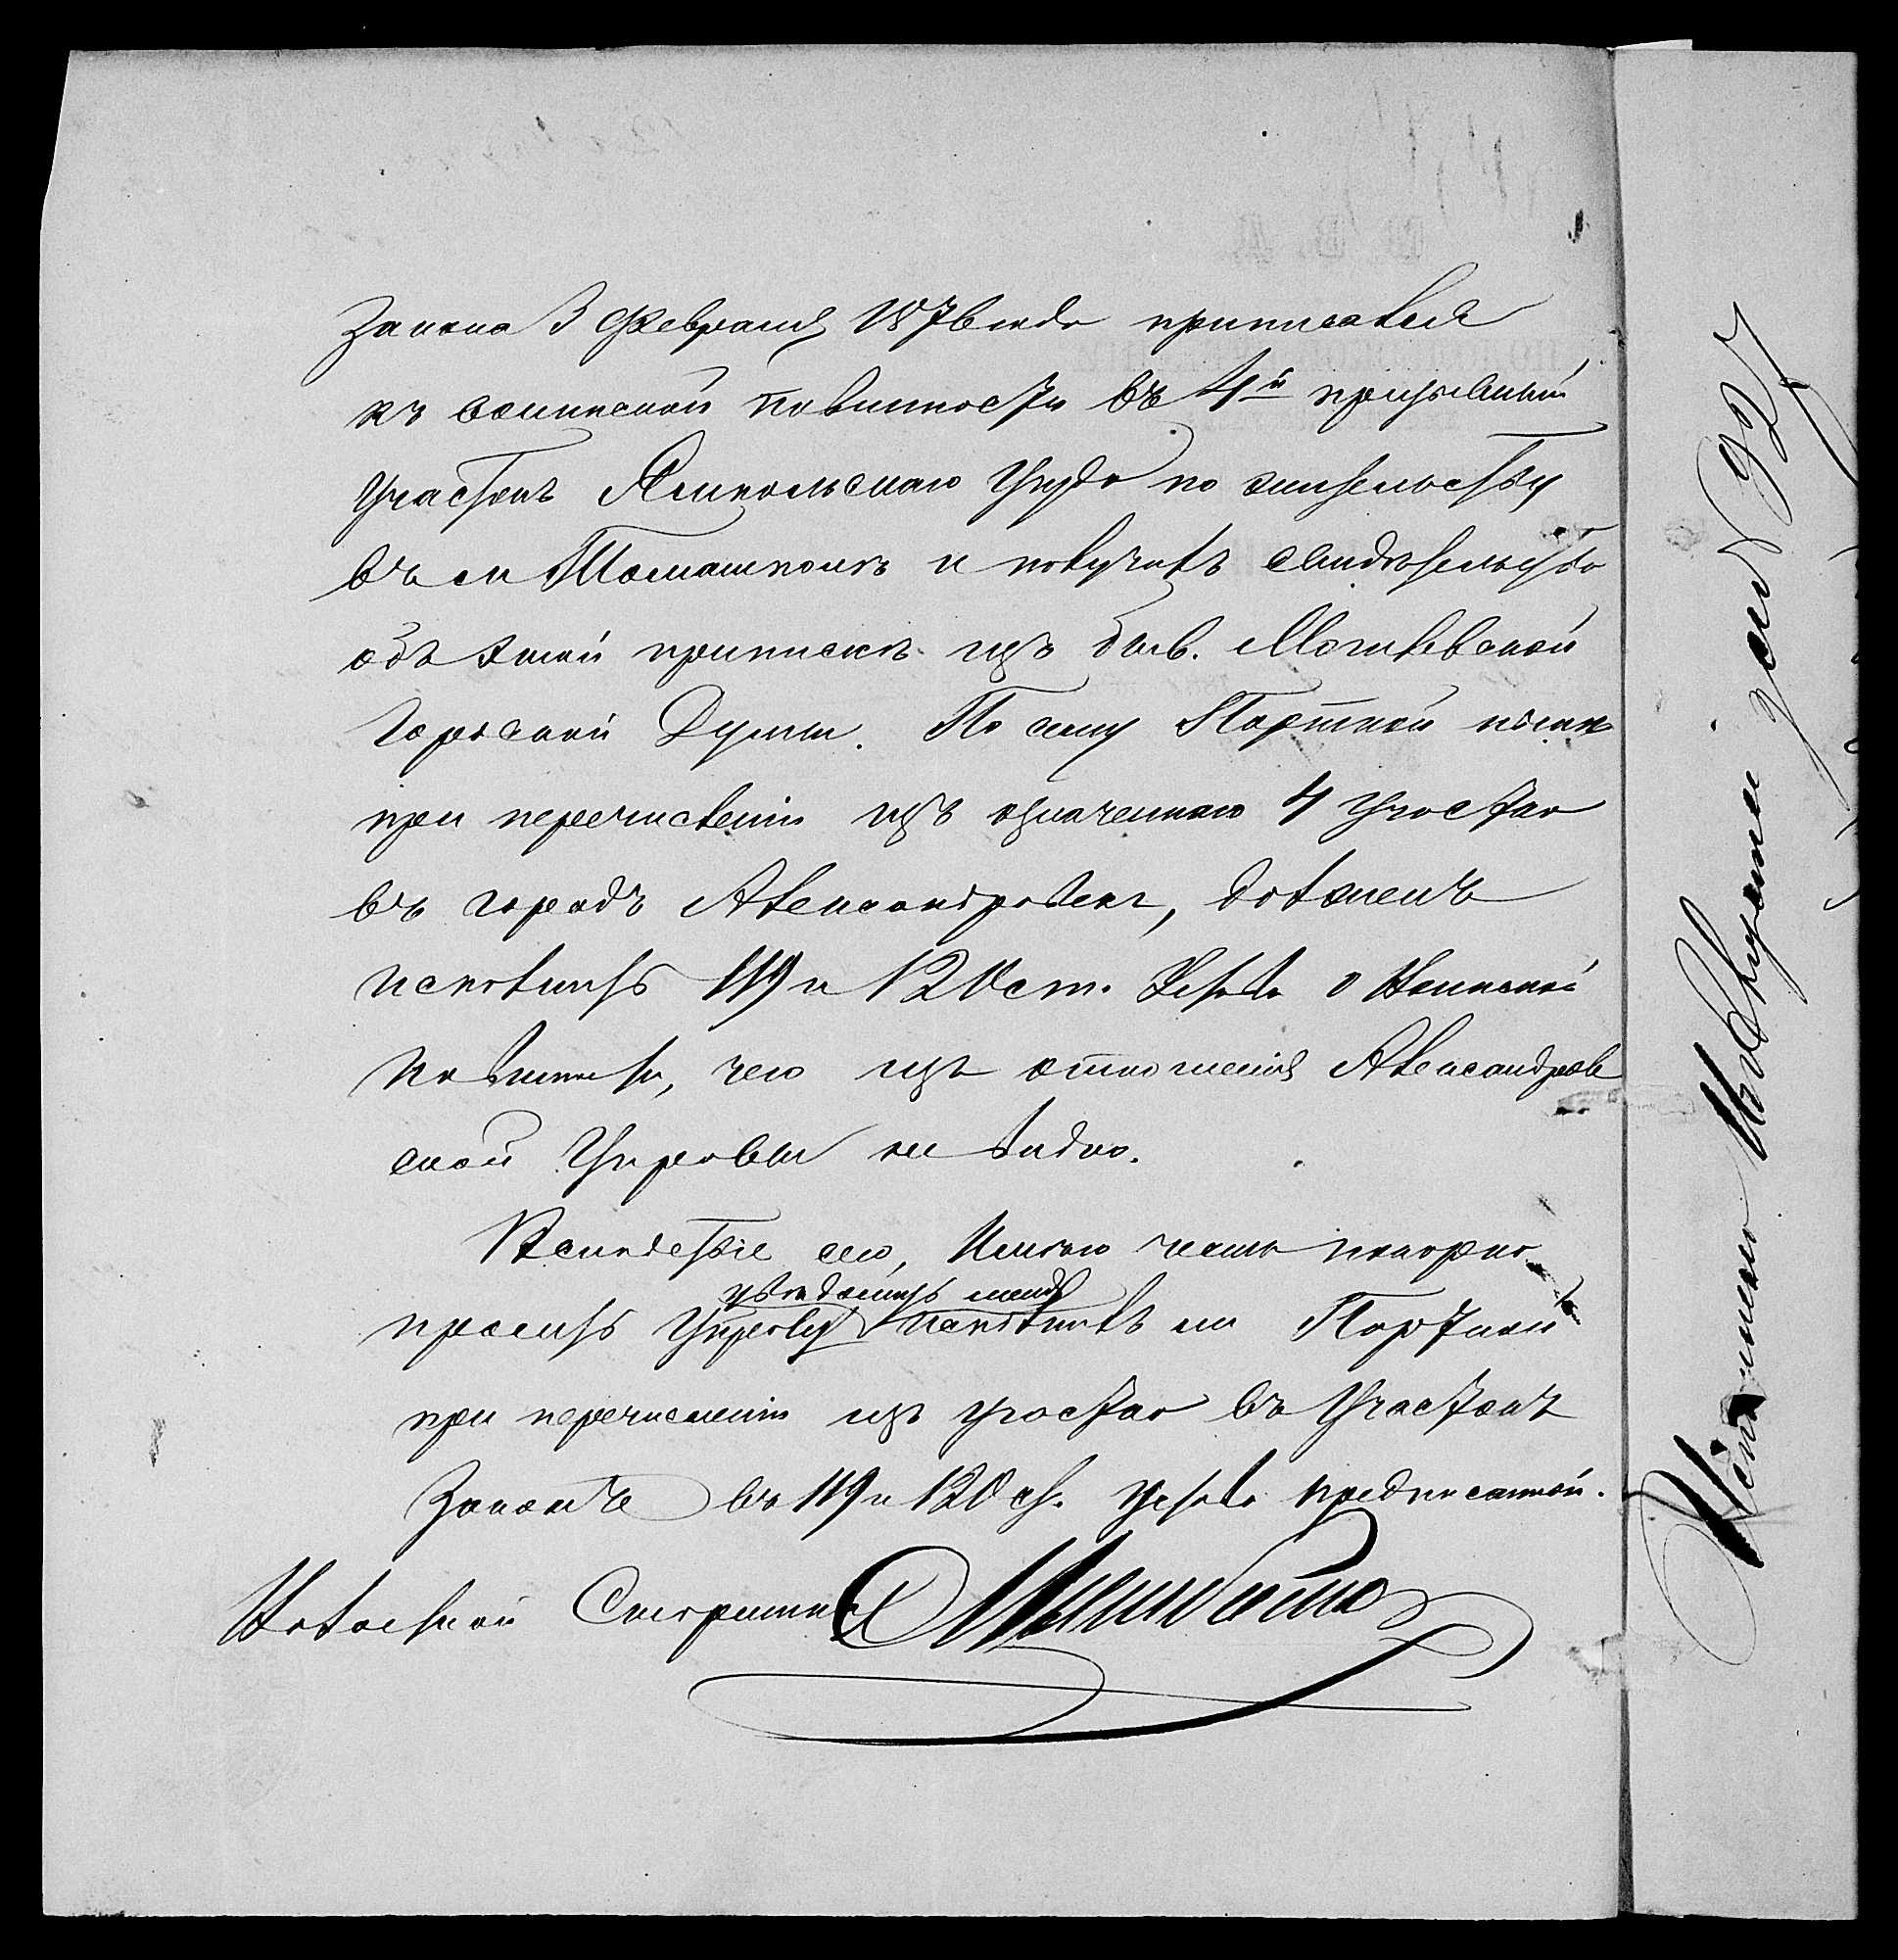 Закона 3 Февраля 1876 года приписался
къ воинской повинности въ 4й призывный
участокъ Ямпольскаго Уѣзда по жительству
въ м Томашполѣ и получилъ свидѣтельство
объ этой припискѣ изъ быв. Могилевской
Городской Думы. По сему Портной
при перечисленіи изъ означеннаго 4 участка
въ городъ Александровскъ, долженъ
исполнить 119 и 120 ст. Устава о Воинской
Повинности, чего изъ отношенія Александров
ской Управы не видно.
Вслѣдствіе сего, Имѣю честь покорно
увѣдомить меня
просить Управу исполнилъ ли Портной
при перечисленіи изъ участка въ Участокъ
Законъ въ 119 и 120 ст. Устава предписанной.
Волостной Старшина